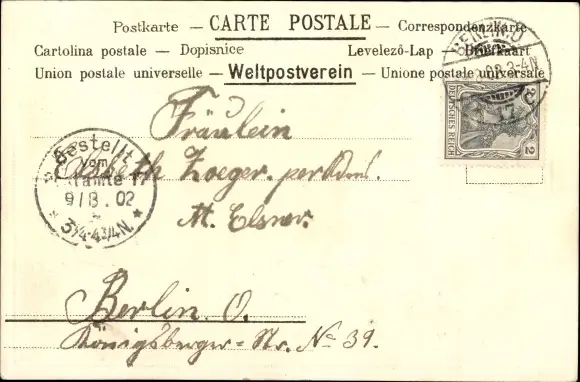 Postkarte — CARTE POSTALE — Correspondenzkarte
Cartolina postale — Dopisnice Levelező-Lap — Briefkaart
Union postale universelle — Weltpostverein — Unione postale universale
DEUTSCHES REICH
2
17
Fräulein
Elsbeth Zoeger.
M. Elsner.
Bestellt
vom
17
9/8.02
3¼-4¾N.
Berlin. O.
Königsberger-Str. No 39.